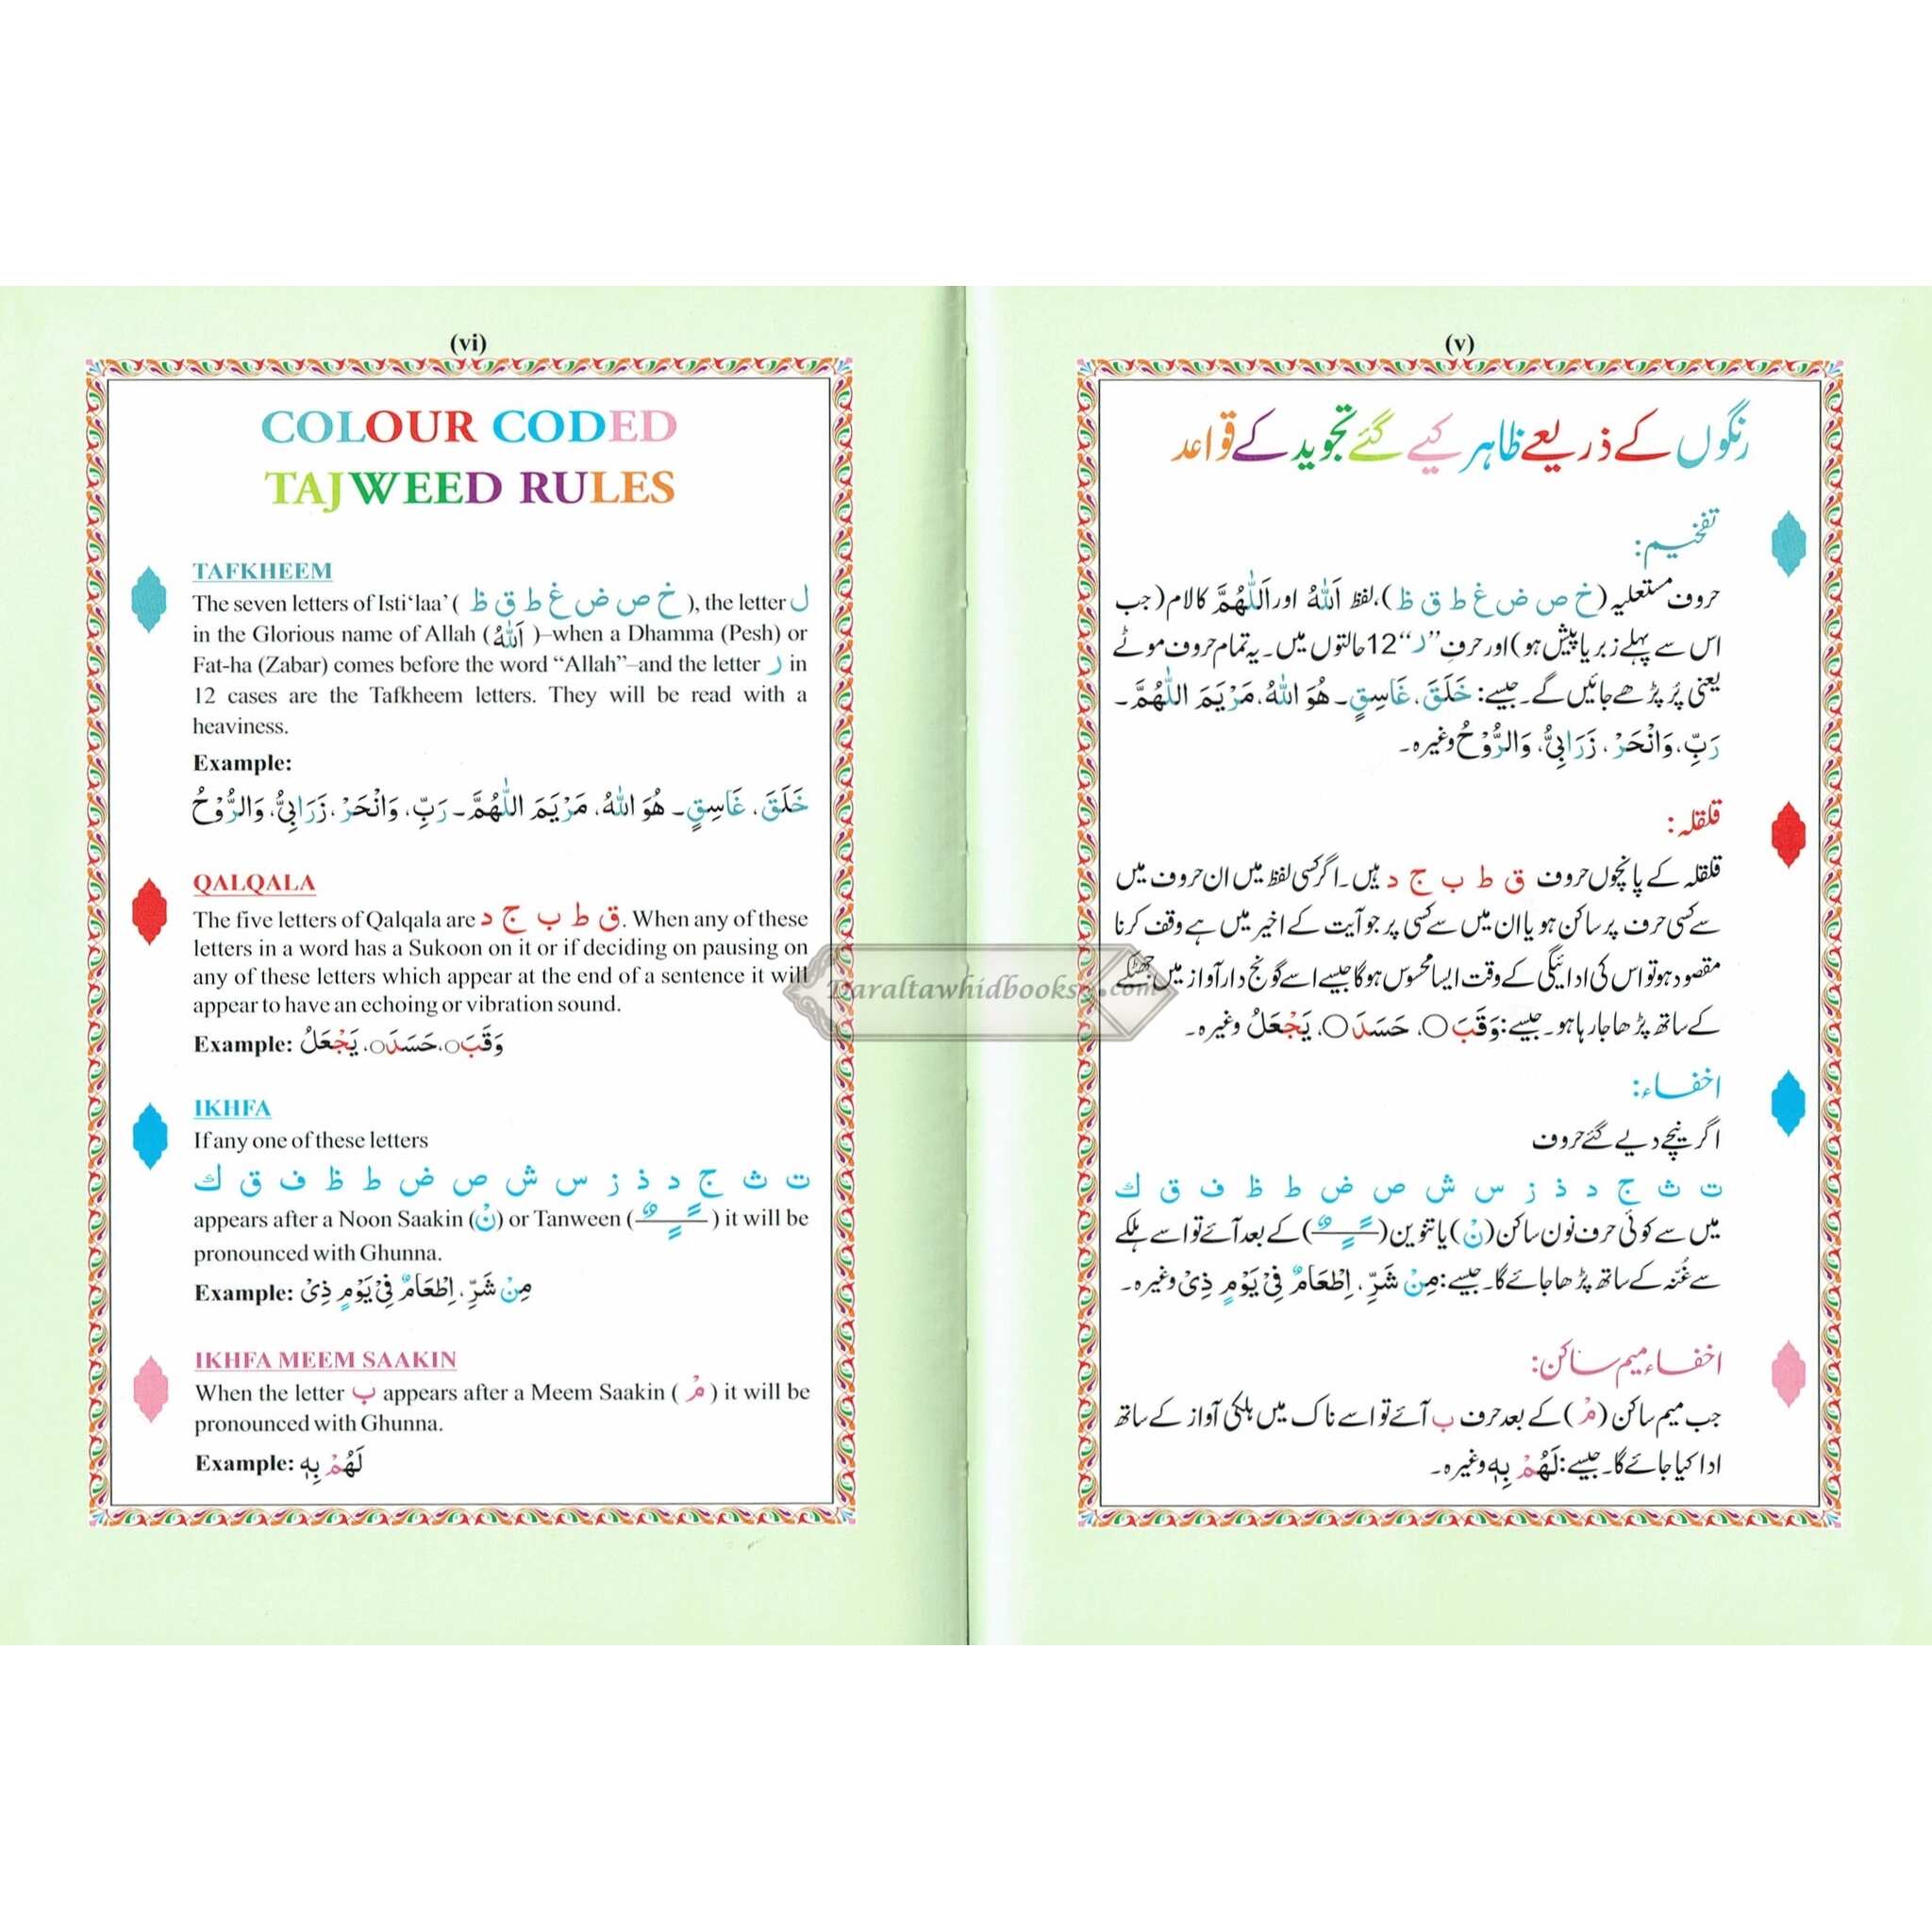 (vi)
COLOUR CODED
TAJWEED RULES
TAFKHEEM
The seven letters of Isti‘laa’ ( خ ص ض غ ط ق ظ ), the letter ل
in the Glorious name of Allah (اَللّٰهُ)–when a Dhamma (Pesh) or
Fat-ha (Zabar) comes before the word “Allah”–and the letter ر in
12 cases are the Tafkheem letters. They will be read with a
heaviness.
Example:
خَلَقَ، غَاسِقٍ۔ هُوَ اللّٰهُ، مَرْيَمَ اللّٰهُمَّ۔ رَبِّ، وَانْحَرْ، زَرَابِيُّ، وَالرُّوْحُ
QALQALA
The five letters of Qalqala are ق ط ب ج د. When any of these
letters in a word has a Sukoon on it or if deciding on pausing on
any of these letters which appear at the end of a sentence it will
appear to have an echoing or vibration sound.
Example: وَقَبَ○، حَسَدَ○، يَجْعَلُ
IKHFA
If any one of these letters
ت ث ج د ذ ز س ش ص ض ط ظ ف ق ك
appears after a Noon Saakin (نْ) or Tanween ( ـًـٍـٌ ) it will be
pronounced with Ghunna.
Example: مِنْ شَرِّ، اِطْعَامٌ فِيْ يَوْمٍ ذِيْ
IKHFA MEEM SAAKIN
When the letter ب appears after a Meem Saakin ( مْ ) it will be
pronounced with Ghunna.
Example: لَهُمْ بِهٖ
(v)
رنگوں کے ذریعے ظاہر کیے گئے تجوید کے قواعد
تفخیم:
حروف مستعلیہ (خ ص ض غ ط ق ظ)، لفظ اَللّٰهُ اور اَللّٰهُمَّ کا لام (جب
اس سے پہلے زبر یا پیش ہو) اور حرفِ ”ر“ 12 حالتوں میں۔ یہ تمام حروف موٹے
یعنی پُر پڑھے جائیں گے۔ جیسے: خَلَقَ، غَاسِقٍ۔ هُوَ اللّٰهُ، مَرْيَمَ اللّٰهُمَّ۔
رَبِّ، وَانْحَرْ، زَرَابِيُّ، وَالرُّوْحُ وغیرہ۔
قلقلہ:
قلقلہ کے پانچوں حروف ق ط ب ج د ہیں۔ اگر کسی لفظ میں ان حروف میں
سے کسی حرف پر ساکن ہو یا ان میں سے کسی پر جو آیت کے اخیر میں ہے وقف کرنا
مقصود ہو تو اس کی ادائیگی کے وقت ایسا محسوس ہوگا جیسے اسے گونج دار آواز میں جھٹکے
کے ساتھ پڑھا جا رہا ہو۔ جیسے: وَقَبَ○، حَسَدَ○، يَجْعَلُ وغیرہ۔
اخفاء:
اگر نیچے دیے گئے حروف
ت ث ج د ذ ز س ش ص ض ط ظ ف ق ك
میں سے کوئی حرف نون ساکن (نْ) یا تنوین ( ـًـٍـٌ ) کے بعد آئے تو اسے ہلکے
سے غُنّہ کے ساتھ پڑھا جائے گا۔ جیسے: مِنْ شَرِّ، اِطْعَامٌ فِيْ يَوْمٍ ذِيْ وغیرہ۔
اخفاء میم ساکن:
جب میم ساکن (مْ) کے بعد حرف ب آئے تو اسے ناک میں ہلکی آواز کے ساتھ
ادا کیا جائے گا۔ جیسے: لَهُمْ بِهٖ وغیرہ۔
Daraltawhidbooks.com